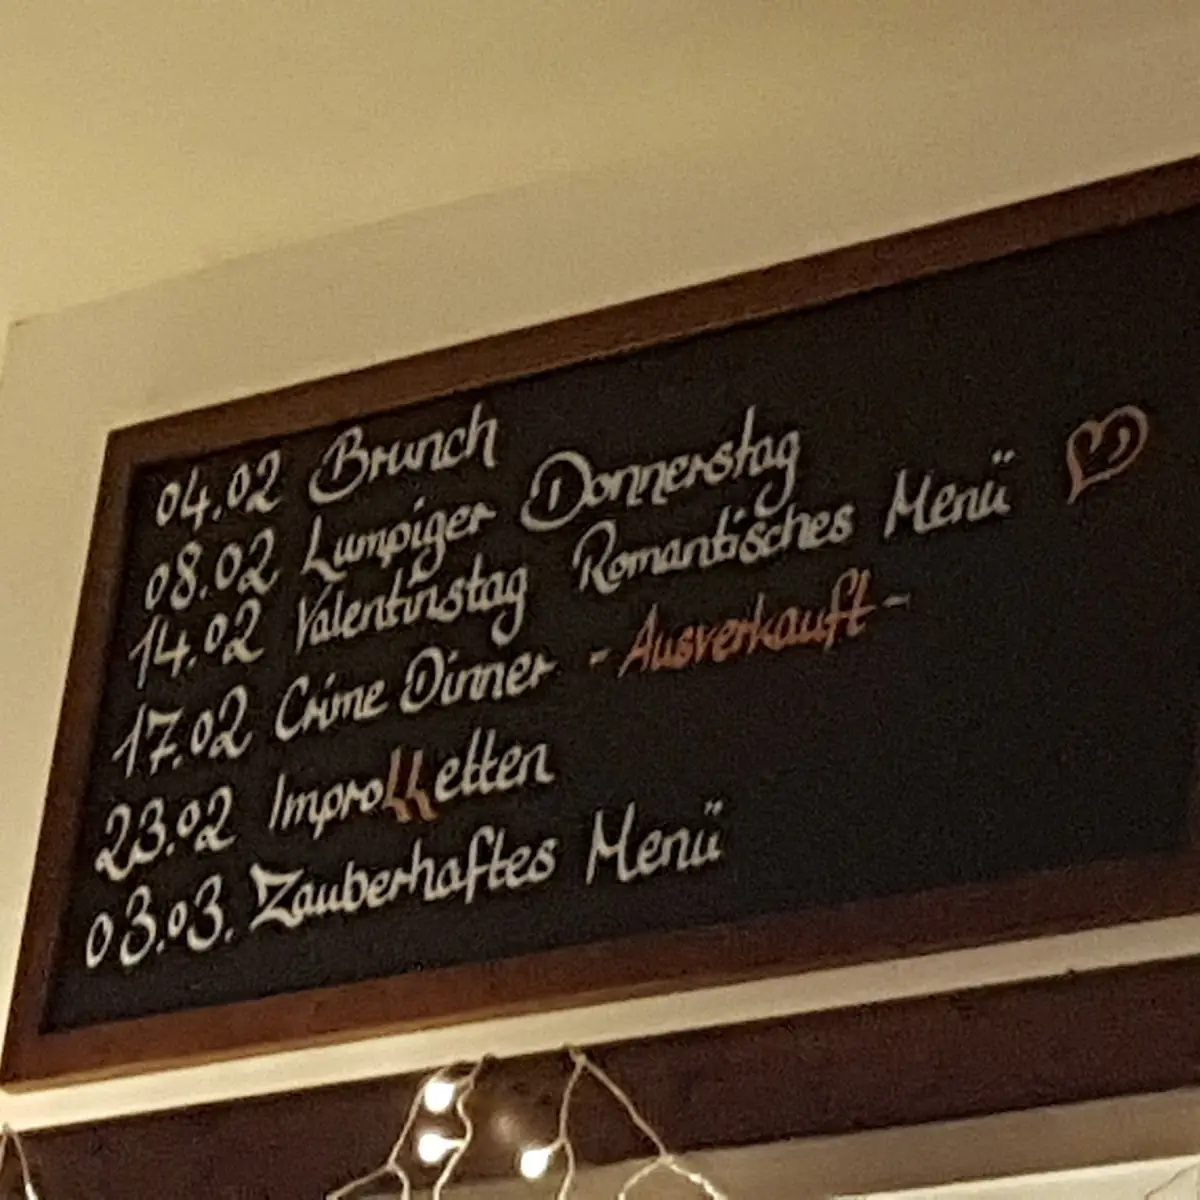 04.02 Brunch
08.02 Lumpiger Donnerstag
14.02 Valentinstag Romantisches Menü
17.02 Crime Dinner - Ausverkauft -
23.02 Improkketten
03.03. Zauberhaftes Menü